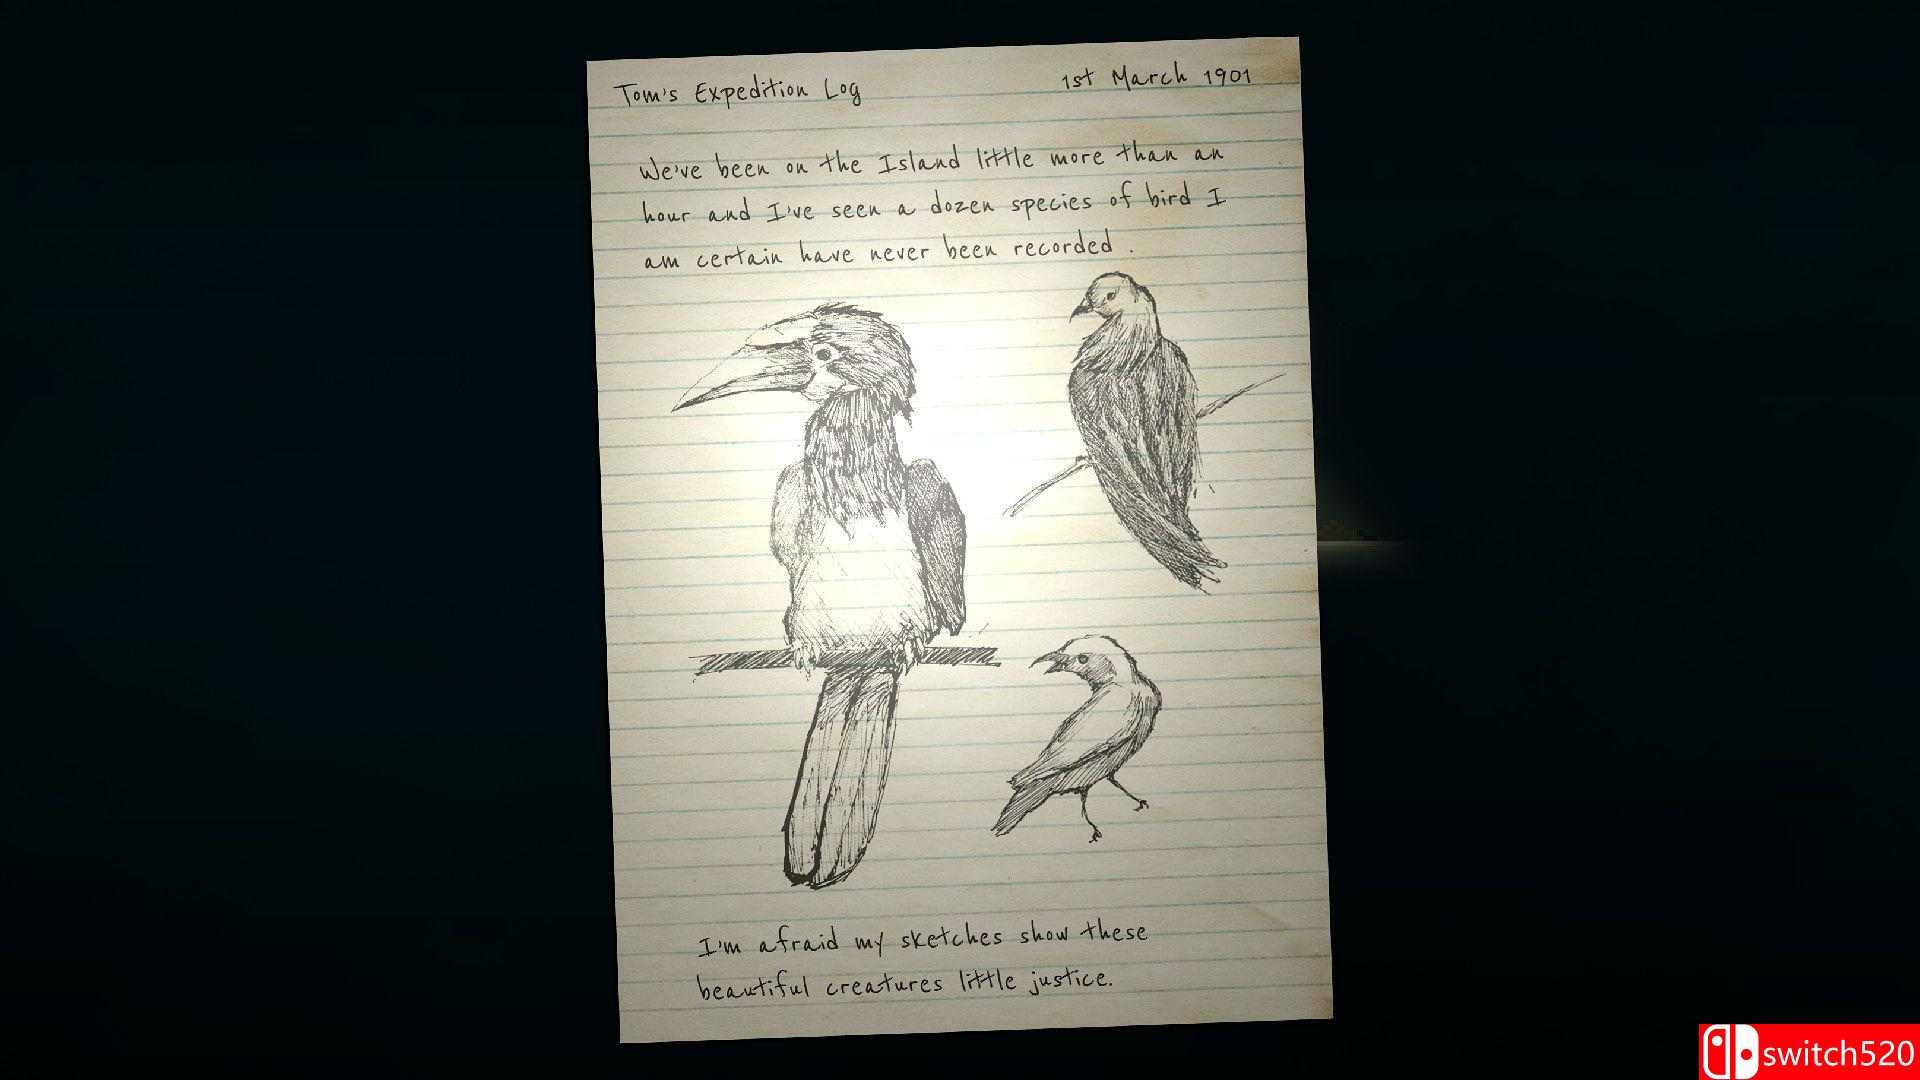 Tom's Expedition Log
1st March 1901
We've been on the Island little more than an
hour and I've seen a dozen species of bird I
am certain have never been recorded.
I'm afraid my sketches show these
beautiful creatures little justice.
switch520